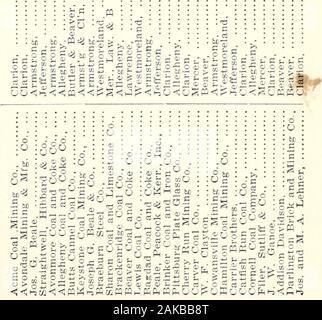 Acme Coal Mining Co.,
Avondale Mining & Mfg. Co.
Jos. G. Beale,
Straightwell, Hibbard & Co.,
Avonmore Coal and Coke Co.,
Allegheny Coal and Coke Co.,
Butts Cannel Coal Co.,
Keystone Coal Mining Co.,
Joseph G. Beale & Co.,
Braeburn Steel Co.,
Sharon Coal and Limestone Co.
Brackenridge Coal Co.,
Beaver Coal and Coke Co.
Lewis Coal Co.,
Bagdad Coal and Coke Co.,
Peale, Peacock & Kerr, Inc.,
Brinker Coal and Iron Co.,
Pittsburg Plate Glass Co.,
Cherry Run Mining Co.,
Carver Coal Co.,
W. F. Clayton,
Cowansville Mining Co.,
Hamilton Coal Mining Co.,
Carrier Brothers,
Catfish Coal Co.,
Cornell Coal Company,
Filer, Sutliff & Co.,
J. W. Ganoe,
Addison Davidson,
Darlington Brick and Mining Co.
Jos. and M. A. Lehner,
Clarion,
Clarion,
Armstrong,
Jefferson,
Armstrong,
Allegheny,
Butler & Beaver,
Armst'g & Cl'n,
Armstrong,
Westmoreland,
Mer., Law. & B
Allegheny,
Lawrence,
Westmoreland,
Armstrong,
Jefferson,
Clarion,
Allegheny,
Clarion,
Mercer,
Beaver,
Armstrong,
Westmoreland,
Jefferson,
Clarion,
Allegheny,
Mercer,
Clarion,
Beaver,
Beaver,
Clarion,
alamy
Image ID: 2AKBB8T
www.alamy.com